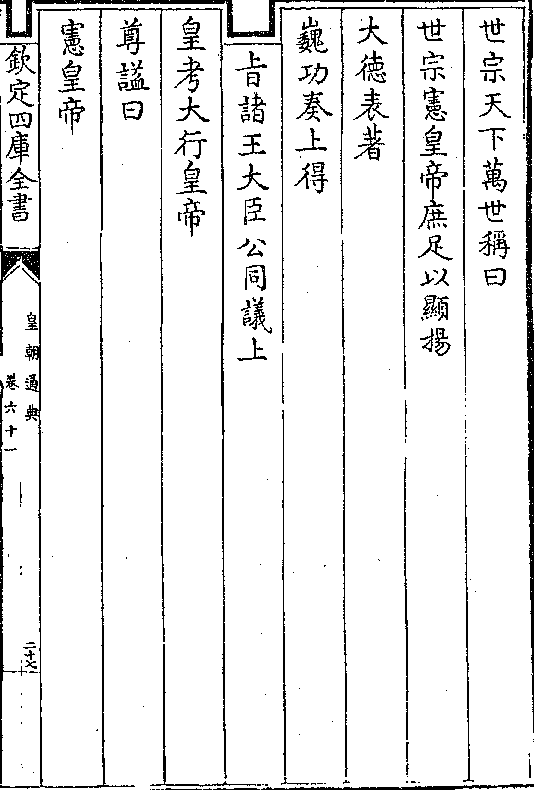 世宗天下萬世稱曰
世宗憲皇帝庶足以顯揚
大德表著
巍功奏上得
㫖諸王大臣公同議上
皇考大行皇帝
尊諡曰
憲皇帝
欽定四庫全書
皇朝通典
卷六十一
二十七